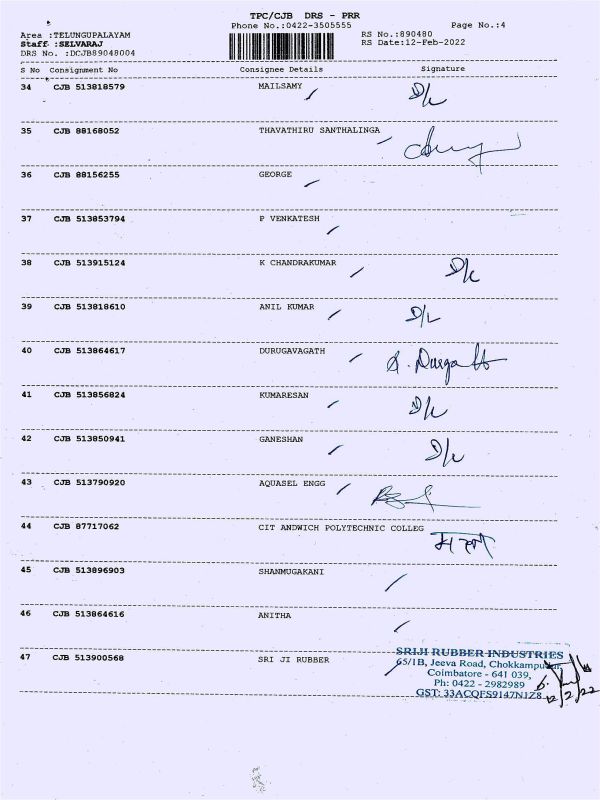 TPC/CJB DRS - PRR
Phone No.:0422-3505555 Page No.:4
Area :TELUNGUPALAYAM RS No.:890480
Staff :SELVARAJ RS Date:12-Feb-2022
DRS No. :DCJB89048004
S No Consignment No Consignee Details Signature
34 CJB 513818579 MAILSAMY D/L
35 CJB 88168052 THAVATHIRU SANTHALINGA
36 CJB 88156255 GEORGE
37 CJB 513853794 P VENKATESH
38 CJB 513915124 K CHANDRAKUMAR D/L
39 CJB 513818610 ANIL KUMAR D/L
40 CJB 513864617 DURUGAVAGATH
41 CJB 513856824 KUMARESAN D/L
42 CJB 513850941 GANESHAN D/L
43 CJB 513790920 AQUASEL ENGG
44 CJB 87717062 CIT ANDWICH POLYTECHNIC COLLEG
45 CJB 513896903 SHANMUGAKANI
46 CJB 513864616 ANITHA
47 CJB 513900568 SRI JI RUBBER
SRIJI RUBBER INDUSTRIES
65/1B, Jeeva Road, Chokkampudur,
Coimbatore - 641 039,
Ph: 0422 - 2982989
GST: 33ACQFS9147N1Z8
12/2/22